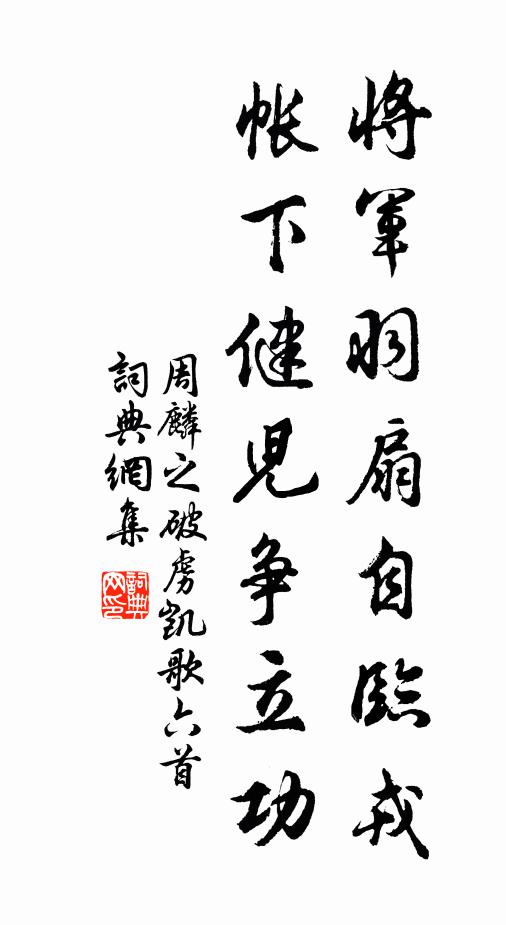 將軍羽扇自臨戎
帳下健児争立功
周麟之破虜凱歌六首
詞典網集
詞典网印